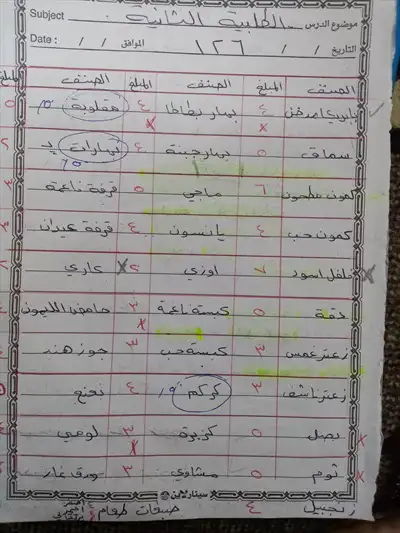 موضوع الدرس الطلبية الثانية Subject
التاريخ / / ١٢٦ الموافق / / Date :
الصنف المبلغ الصنف المبلغ الصنف المبلغ
بابريكا مدخن ٤ بهار بطاطا ٤ مقلوبة ٥
سماق ٥ بهار جبنة ٤ بهارات ٢
كمون مطحون ٦ ماجي ٥ قرفة ناعمة ٣
كمون حب ٤ يانسون ٤ قرفة عيدان ٣
فلفل اسود ٧ اوزي ٢ كاري ٢
دقة ٥ كبسة ناعمة ٣ حامض الليمون
زعتر غمس ٣ كبسة حب ٣ جوز هند
زعتر ناشف ٣ كركم ٤ نعنع
بصل ٥ كزبرة ٣ لومي
ثوم ٥ مشاوي ٣ ورق غار
زنجبيل ٤ صبغات طعام ٤ احمر